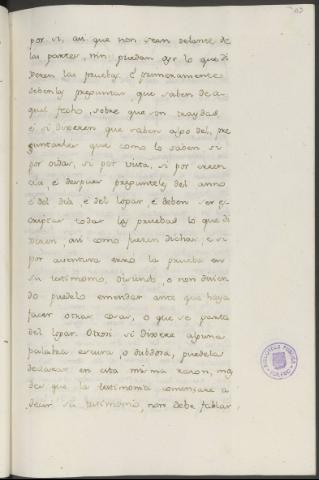 por si, asi que non sean delante de
las partes, nin puedan oyr lo que di
xeren las pruebas. E primeramente
debenles preguntar que saben de a-
quel fecho, sobre que son traydas,
e si dixeren que saben algo del, pre
guntarles que como lo saben si
por oidas, si por vista, si por creen
cia, e despues preguntely del anno
e del dia, e del logar, e deben ser es
criptas todas las pruebas lo que di
xeren, asi como fueren dichas, e si
por aventura erro la prueba en
su testimonio, diciendo, o non dicien
do puedelo emendar ante que haya
facer otras cosas, o que se parta
del logar. Otrosi si dixere alguna
palabra escura, o dubdosa, puedela
declarar en esta misma razon, ma
der que la testimonia comenzare a
decir su testimonio, non debe fablar